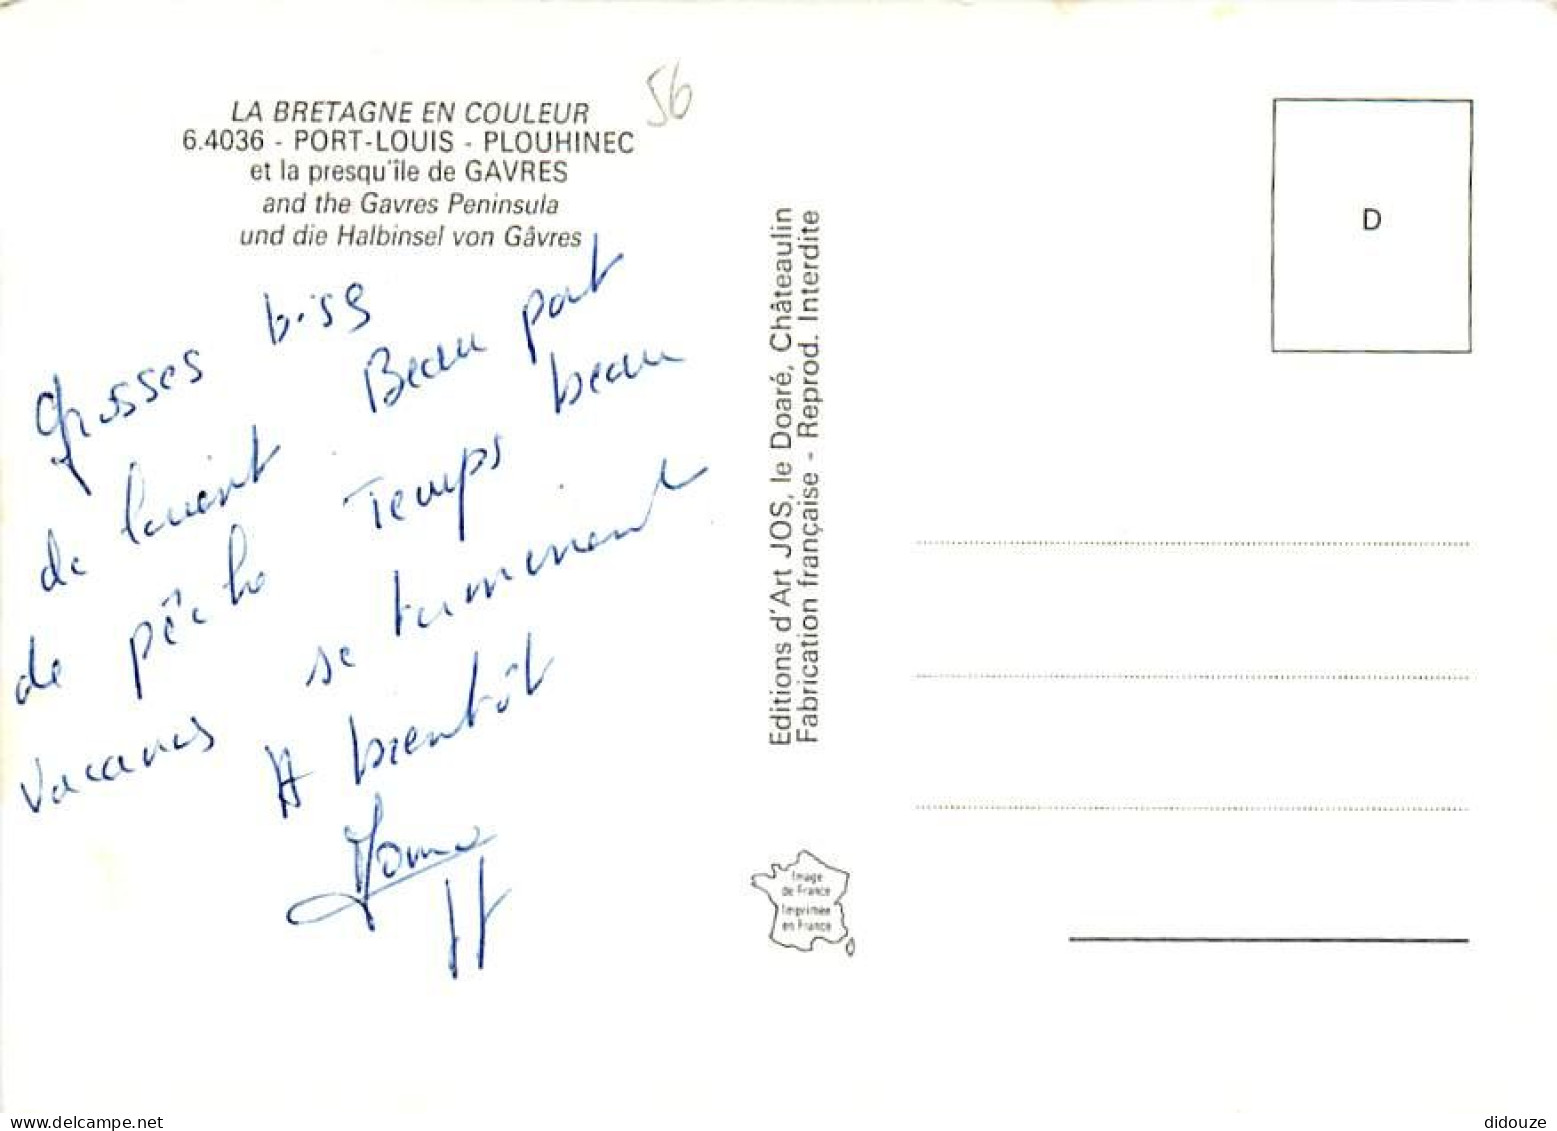 LA BRETAGNE EN COULEUR
6.4036 - PORT-LOUIS - PLOUHINEC
et la presqu'île de GAVRES
and the Gavres Peninsula
und die Halbinsel von Gâvres
56
grosses biss
de Lorient. Beau port
de pêche Temps beau
vacances se terminent
A bientôt
Editions d'Art JOS, le Doaré, Châteaulin
Fabrication française - Reprod. Interdite
D
Image
de France
Imprimée
en France
delcampe.net
didouze